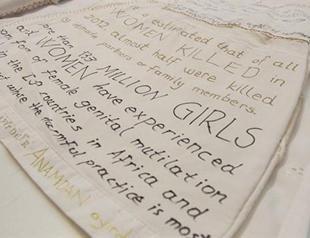 is estimated that of all
WOMEN KILLED in
2012 almost half were killed
by intimate partners or family members.
ore than 133 MILLION GIRLS
and WOMEN have experienced
some form of female genital mutilation
in the 29 countries in Africa and
where the harmful practice is most
ANAMDAN